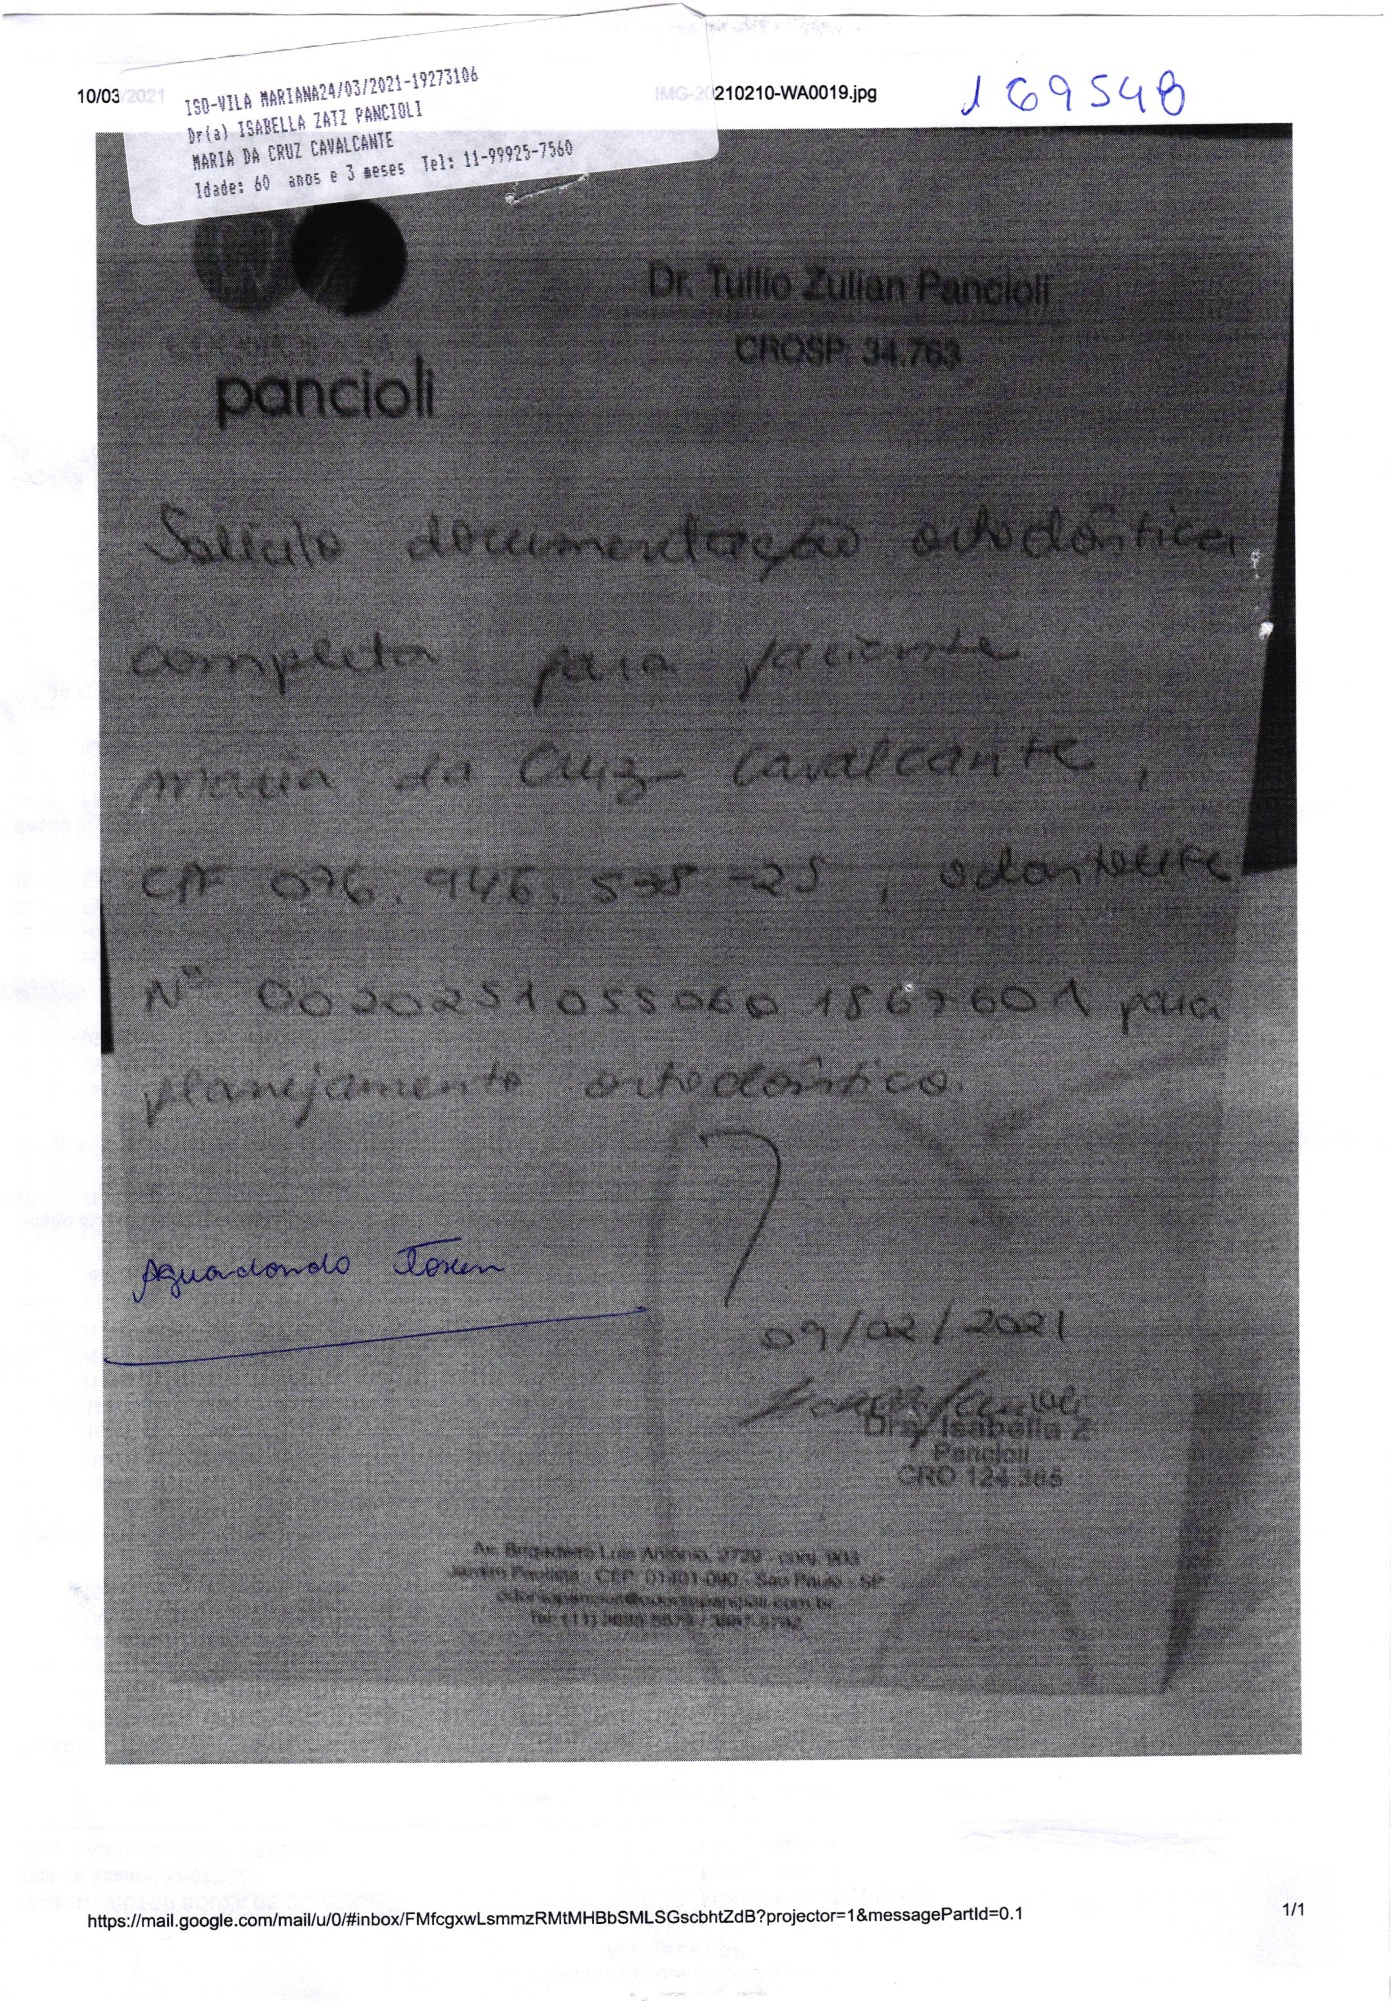 10/03/2021
IMG-20210210-WA0019.jpg
169548
ISO-VILA MARIANA24/03/2021-19273106
Dr(a) ISABELLA ZATZ PANCIOLI
MARIA DA CRUZ CAVALCANTE
Idade: 60 anos e 3 meses Tel: 11-99925-7560
Dr. Tullio Zulian Pancioli
CROSP: 34.763
pancioli
Solicito documentação ortodôntica
completa para paciente
Maria da Cruz Cavalcante,
CPF 076.946.578-25, odontolife
Nº 0020251055060 1867601 para
planejamento ortodôntico.
Aguardando Token
09/02/2021
Dra. Isabella Z.
Pancioli
CRO 124.365
Av. Brigadeiro Luis Antônio, 2729 - conj. 903
Jardim Paulista - CEP: 01401-000 - São Paulo - SP
https://mail.google.com/mail/u/0/#inbox/FMfcgxwLsmmzRMtMHBbSMLSGscbhtZdB?projector=1&messagePartId=0.1
1/1